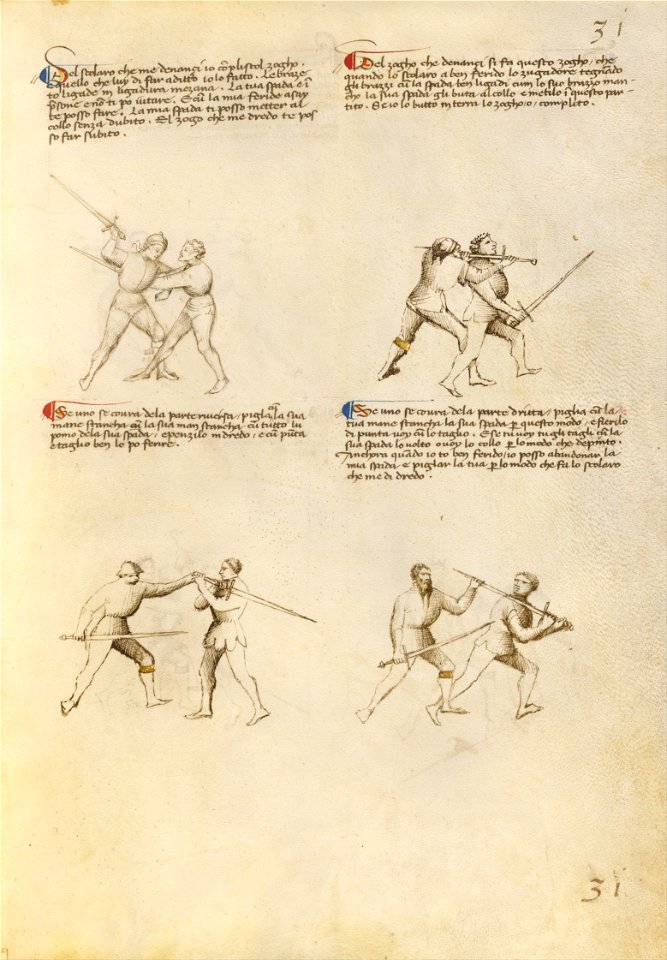 31
Del scolaro che me denançi io cõplisco l zogho.
E quello che luy di far a ditto io lo fatto. Le braze
to ligade in ligadura mezana. La tua spada e ĩ
p̱sone e nõ ti po iutare. E cũ la mia feride asay
te posso fare. La mia spada ti posso metter al
collo senza dubito. El zogo che me dredo te pos
so far subito.
Del zogho che denançi si fa questo zogho, che
quando lo scolaro a ben ferido lo zugadore tegnãdo
gli brazzi cũ la spada ben ligadi cum lo suo brazzo man-
cho la sua spada gli buta al collo e metilo ĩ questo par-
tito. Se io lo butto in terra lo zogho, e completo.
Se uno se covra dela parte riversa, pigla la sua
mane stancha cũ la sua man stancha cũ tutto lu
pomo dela sua spada, e penzilo in dredo, e cũ pũta
e taglio ben lo po ferire.
Se uno se covra dela parte dritta, piglia cũ la
tua mane stancha la sua spada p̱ questo modo, e fierilo
di punta voy cũ lo taglio. E se tu voy tu gli tagli cũ la
sua spada lo volto o voy lo collo p̱ lo modo che depinto.
Anchora quãdo io to ben ferido, io posso abandonar la
mia spada e piglar la tua p̱ lo modo che fa lo scolaro
che me di dredo.
31